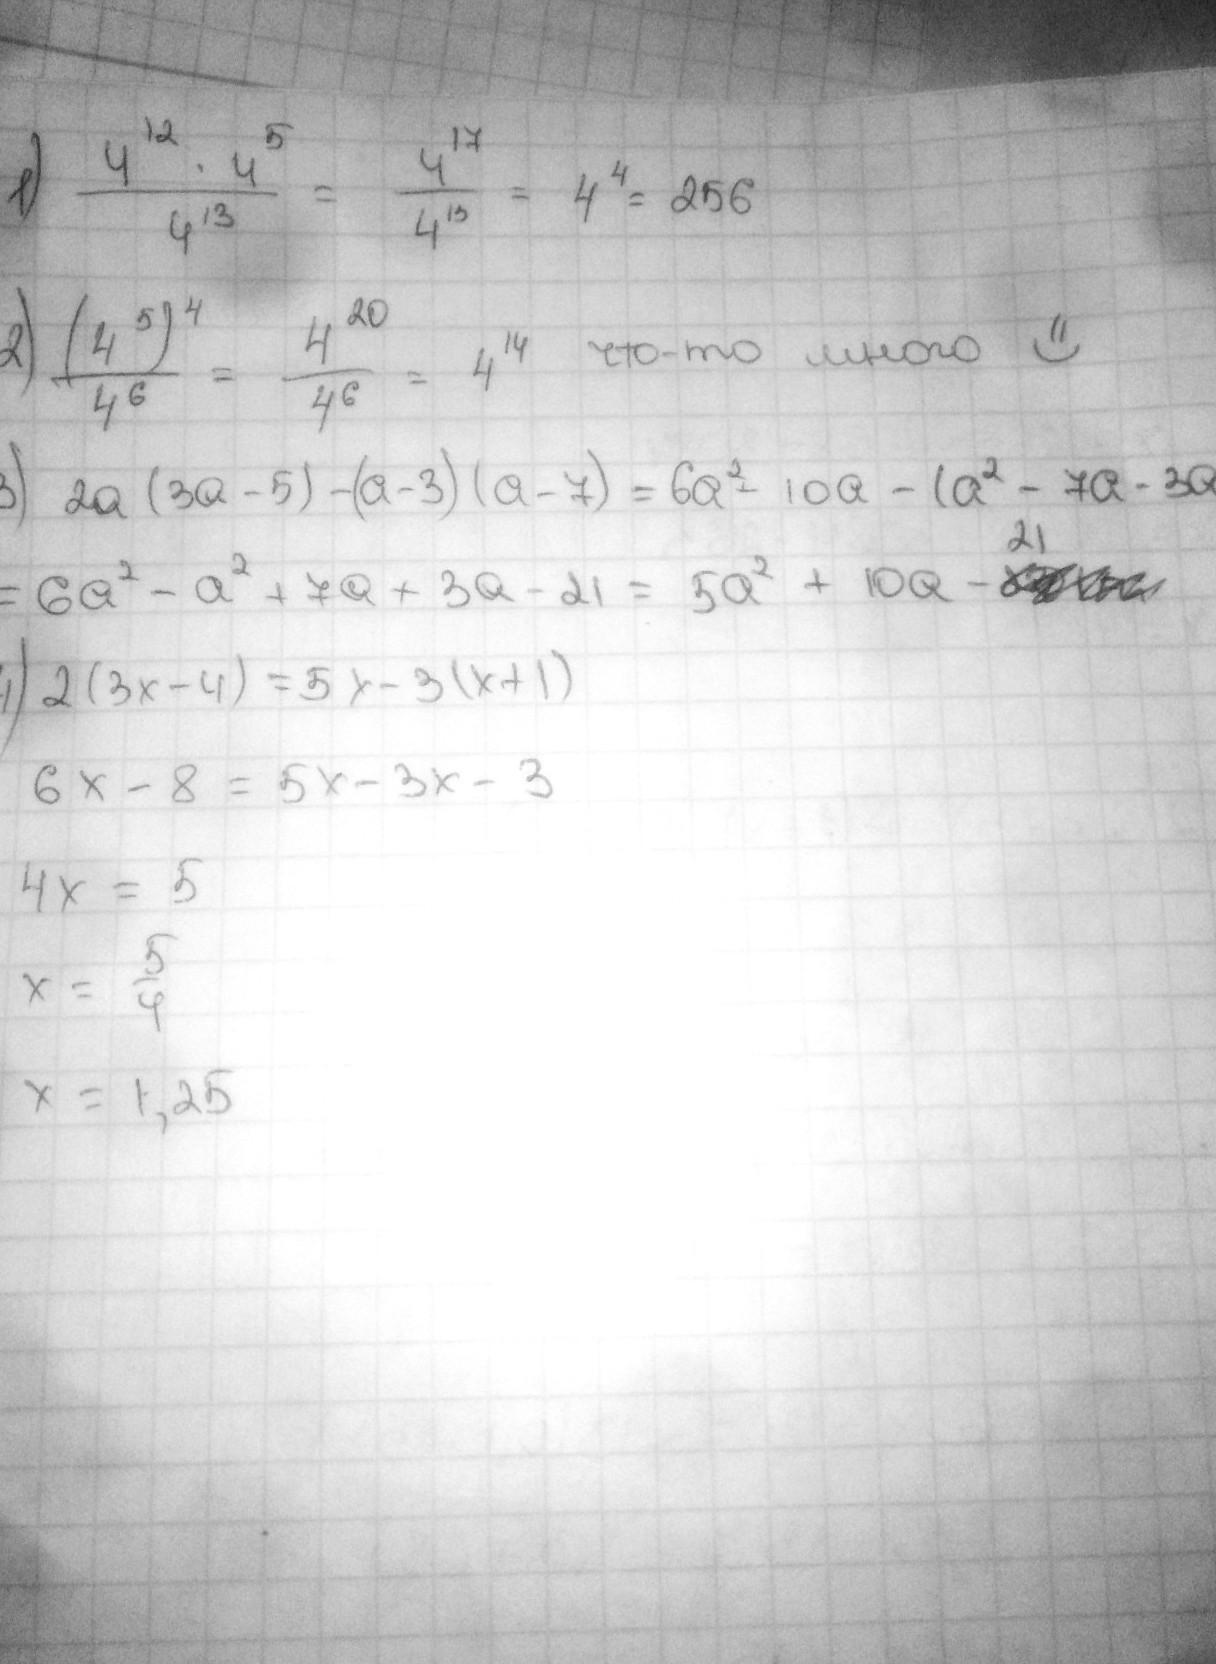 1) (4^12 · 4^5)/4^13 = 4^17/4^13 = 4^4 = 256
2) (4^5)^4/4^6 = 4^20/4^6 = 4^14 что-то много
3) 2a (3a - 5) - (a - 3) (a - 7) = 6a² - 10a - (a² - 7a - 3a
= 6a² - a² + 7a + 3a - 21 = 5a² + 10a - 21
4) 2 (3x - 4) = 5x - 3 (x + 1)
6x - 8 = 5x - 3x - 3
4x = 5
x = 5/4
x = 1,25